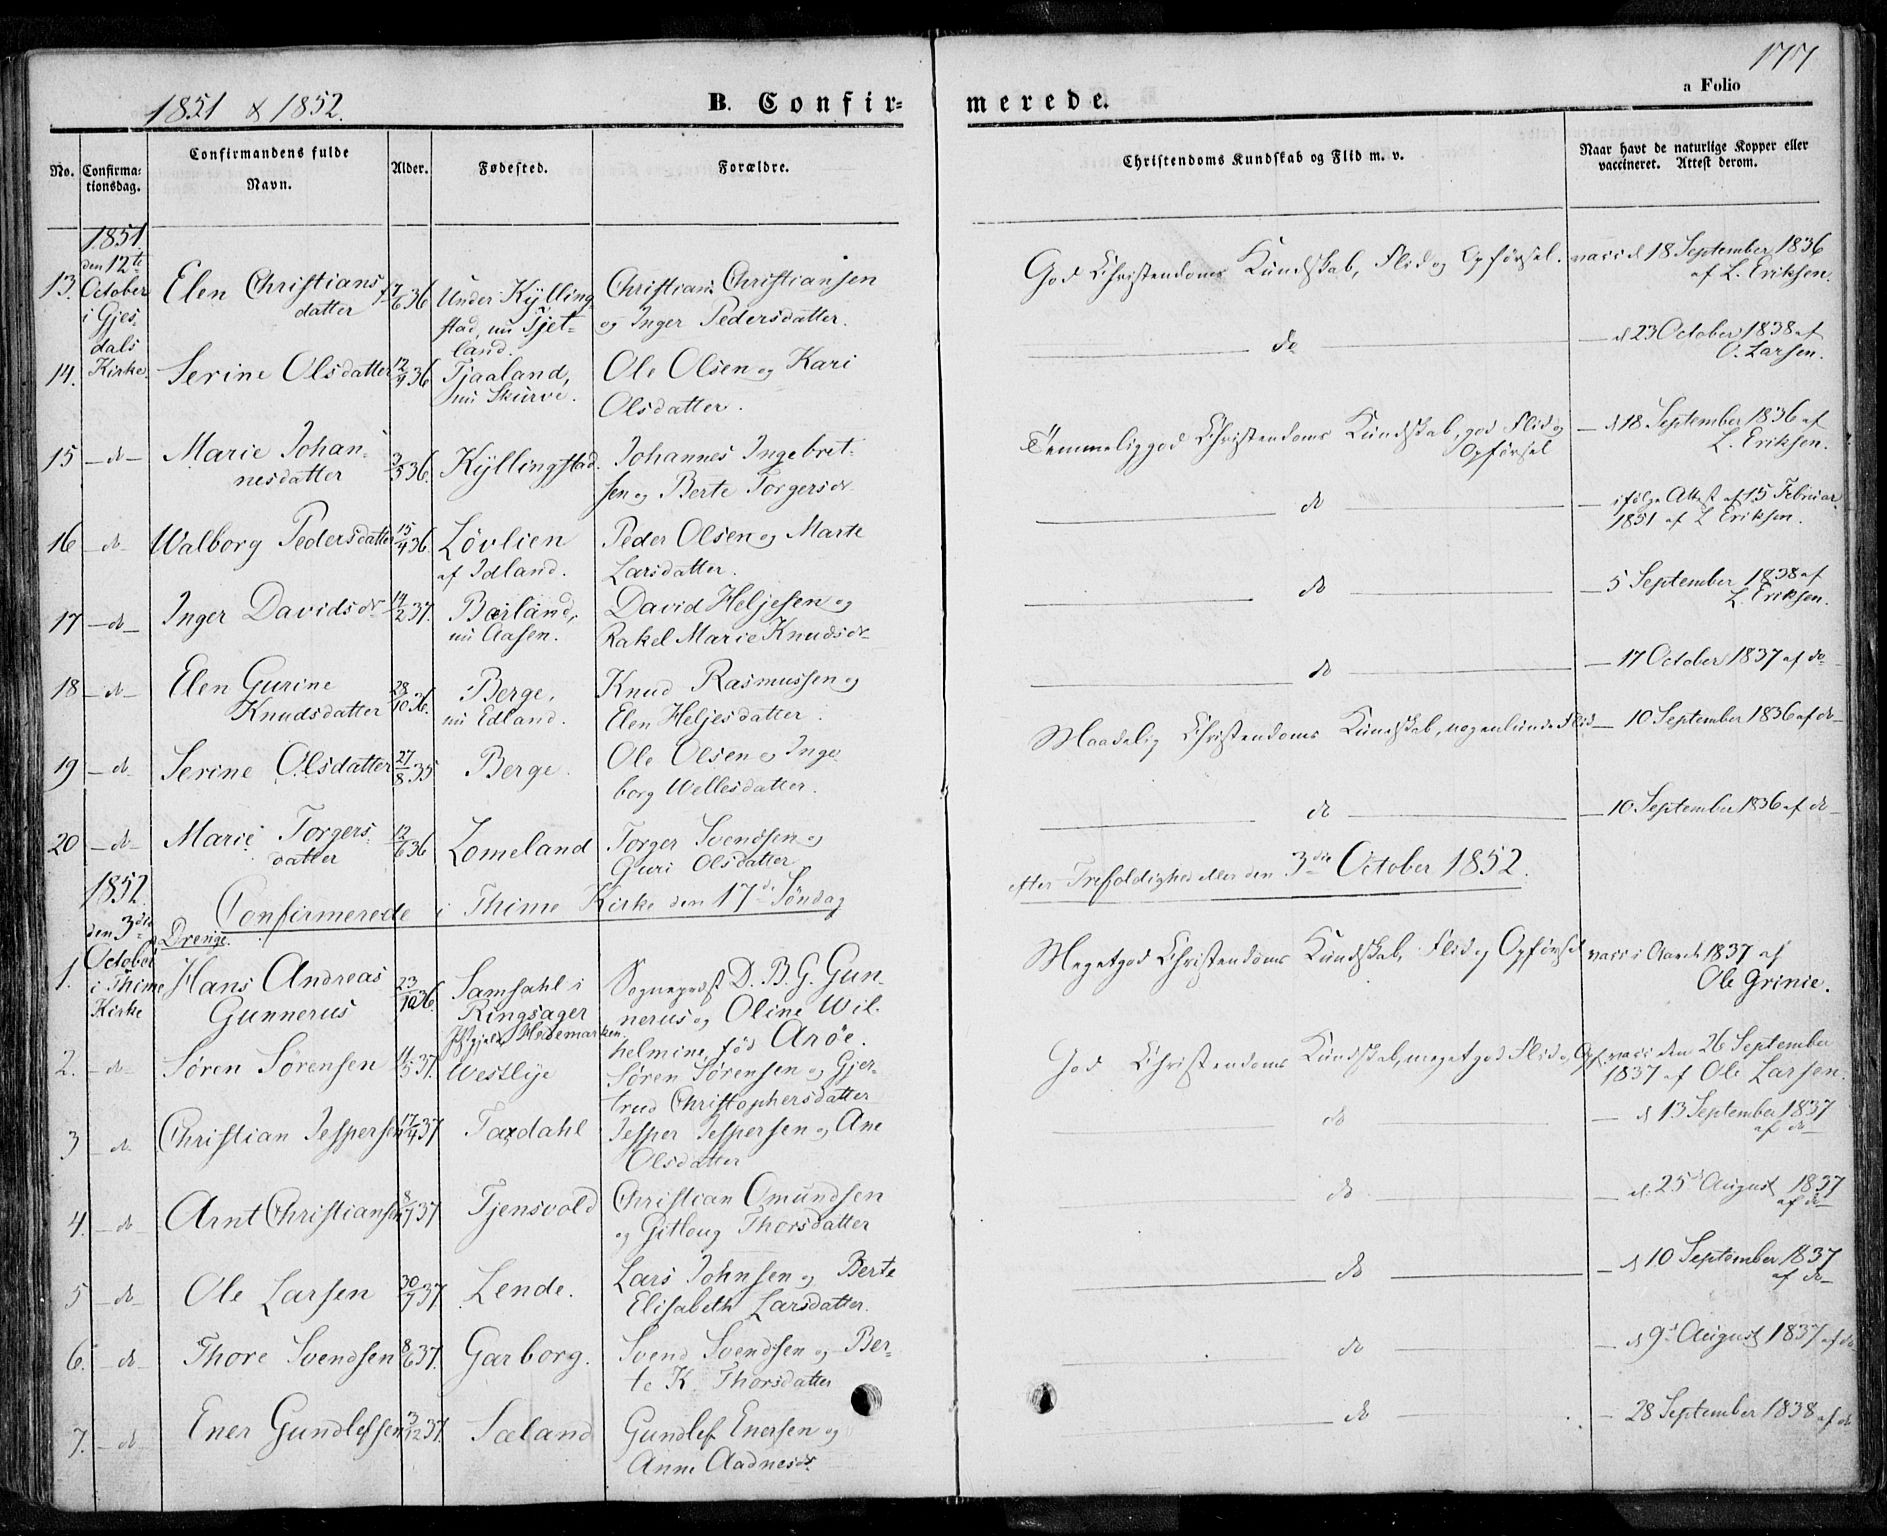 177
1851 & 1852.
B. Confir=
merede.
a Folio
No.
Confirma=
tionsdag.
Confirmandens fulde
Navn.
Alder.
Fødested.
Forældre.
Christendoms Kundskab og Flid m. v.
Naar havt de naturlige Kopper eller
vaccineret. Attest derom.
1851.
den 12te
October
i Gjes-
dals
Kirke.
13.
Elen Christians
datter
17/6 36
Under Kyllings-
stad, nu Tjet-
land.
Christian Christiansen
og Inger Pedersdatter.
God Christendoms Kundskab, Flid og Opførsel.
vacc d 18 September 1836
af L. Eriksen.
14.
Serine Olsdatter
12/4 36
Tjaaland,
nu Skurve.
Ole Olsen og Kari
Olsdatter.
do
d 23 October 1838 af
O. Larsen.
15
do
Marie Johan-
nesdatter
3/5 36.
Kyllingstad.
Johannes Ingebret-
sen og Berte Torgersdr
Temmelig god Christendoms Kundskab, god Flid og
Opførsel
d 18 September 1836 af
L. Eriksen.
16
do
Walborg Pedersdatter
15/4 36.
Løvlien
af Idland.
Peder Olsen og Marte
Larsdatter.
do
ifølge Attest af 15 Februar
1851 af L Eriksen.
17
do
Inger Davidsdr
14/2 37.
Bærland,
nu Aasen.
David Heljesen og
Rakel Marie Knudsdr
do
5 September 1838 af
L. Eriksen.
18
do
Elen Gurine
Knudsdatter
28/10 36.
Berge,
nu Edland.
Knud Rasmussen og
Elen Heljesdatter.
do
17 October 1837 af do
19
do
Serine Olsdatter
27/8 35
Berge.
Ole Olsen og Inge
borg Wellesdatter.
Maadelig Christendoms Kundskab, nogenlunde Flid
10 September 1836 af do
20
do
Marie Torgers-
datter
12/6 36
Lomeland
Torger Svendsen og
Guri Olsdatter
do
10 September 1836 af do
1852.
Confirmerede i Thime Kirke den 17de Søndag
efter Trefoldighed eller den 3die October 1852.
den 3die
October
i Thime
Kirke
Drenge.
1.
Hans Andreas
Gunnerus
23/10 36.
Samsahl i
Ringsager
Pgjeld, Hedemarken
Sognepræst D. B. G. Gun-
nerus og Oline Wil-
helmine, fød Arøe.
Meget god Christendoms Kundskab, Flid og Opførsel
vacc i Aaret 1837 af
Ole Grinie.
2.
do
Søren Sørensen
11/5 37.
Westlye
Søren Sørensen og Gjer-
trud Christophersdatter
God Christendoms Kundskab, meget god Flid og Opf.
vacc den 26 September
1837 af Ole Larsen.
3
do
Christian Jespersen
17/4 37
Taxdahl
Jesper Jespersen og Ane
Olsdatter
do
d 13 September 1837
af do
4.
do
Arnt Christiansen
8/7 37
Tjensvold
Christian Omundsen
og Gitloug Thorsdatter
do
d. 25 August 1837
af do
5
do
Ole Larsen
30/7 37
Lende.
Lars Johnsen og Berte
Elisabeth Larsdatter.
do
d 10 September 1837
af do
6.
do
Thore Svendsen
8/6 37.
Garborg.
Svend Svendsen og Ber-
te K. Thorsdatter
do
d 9d August 1837 af do
7.
do
Ener Gundlefsen
3/12 37.
Sæland
Gundlef Enersen og
Anne Aadnesdr
do
28 September 1838 af do